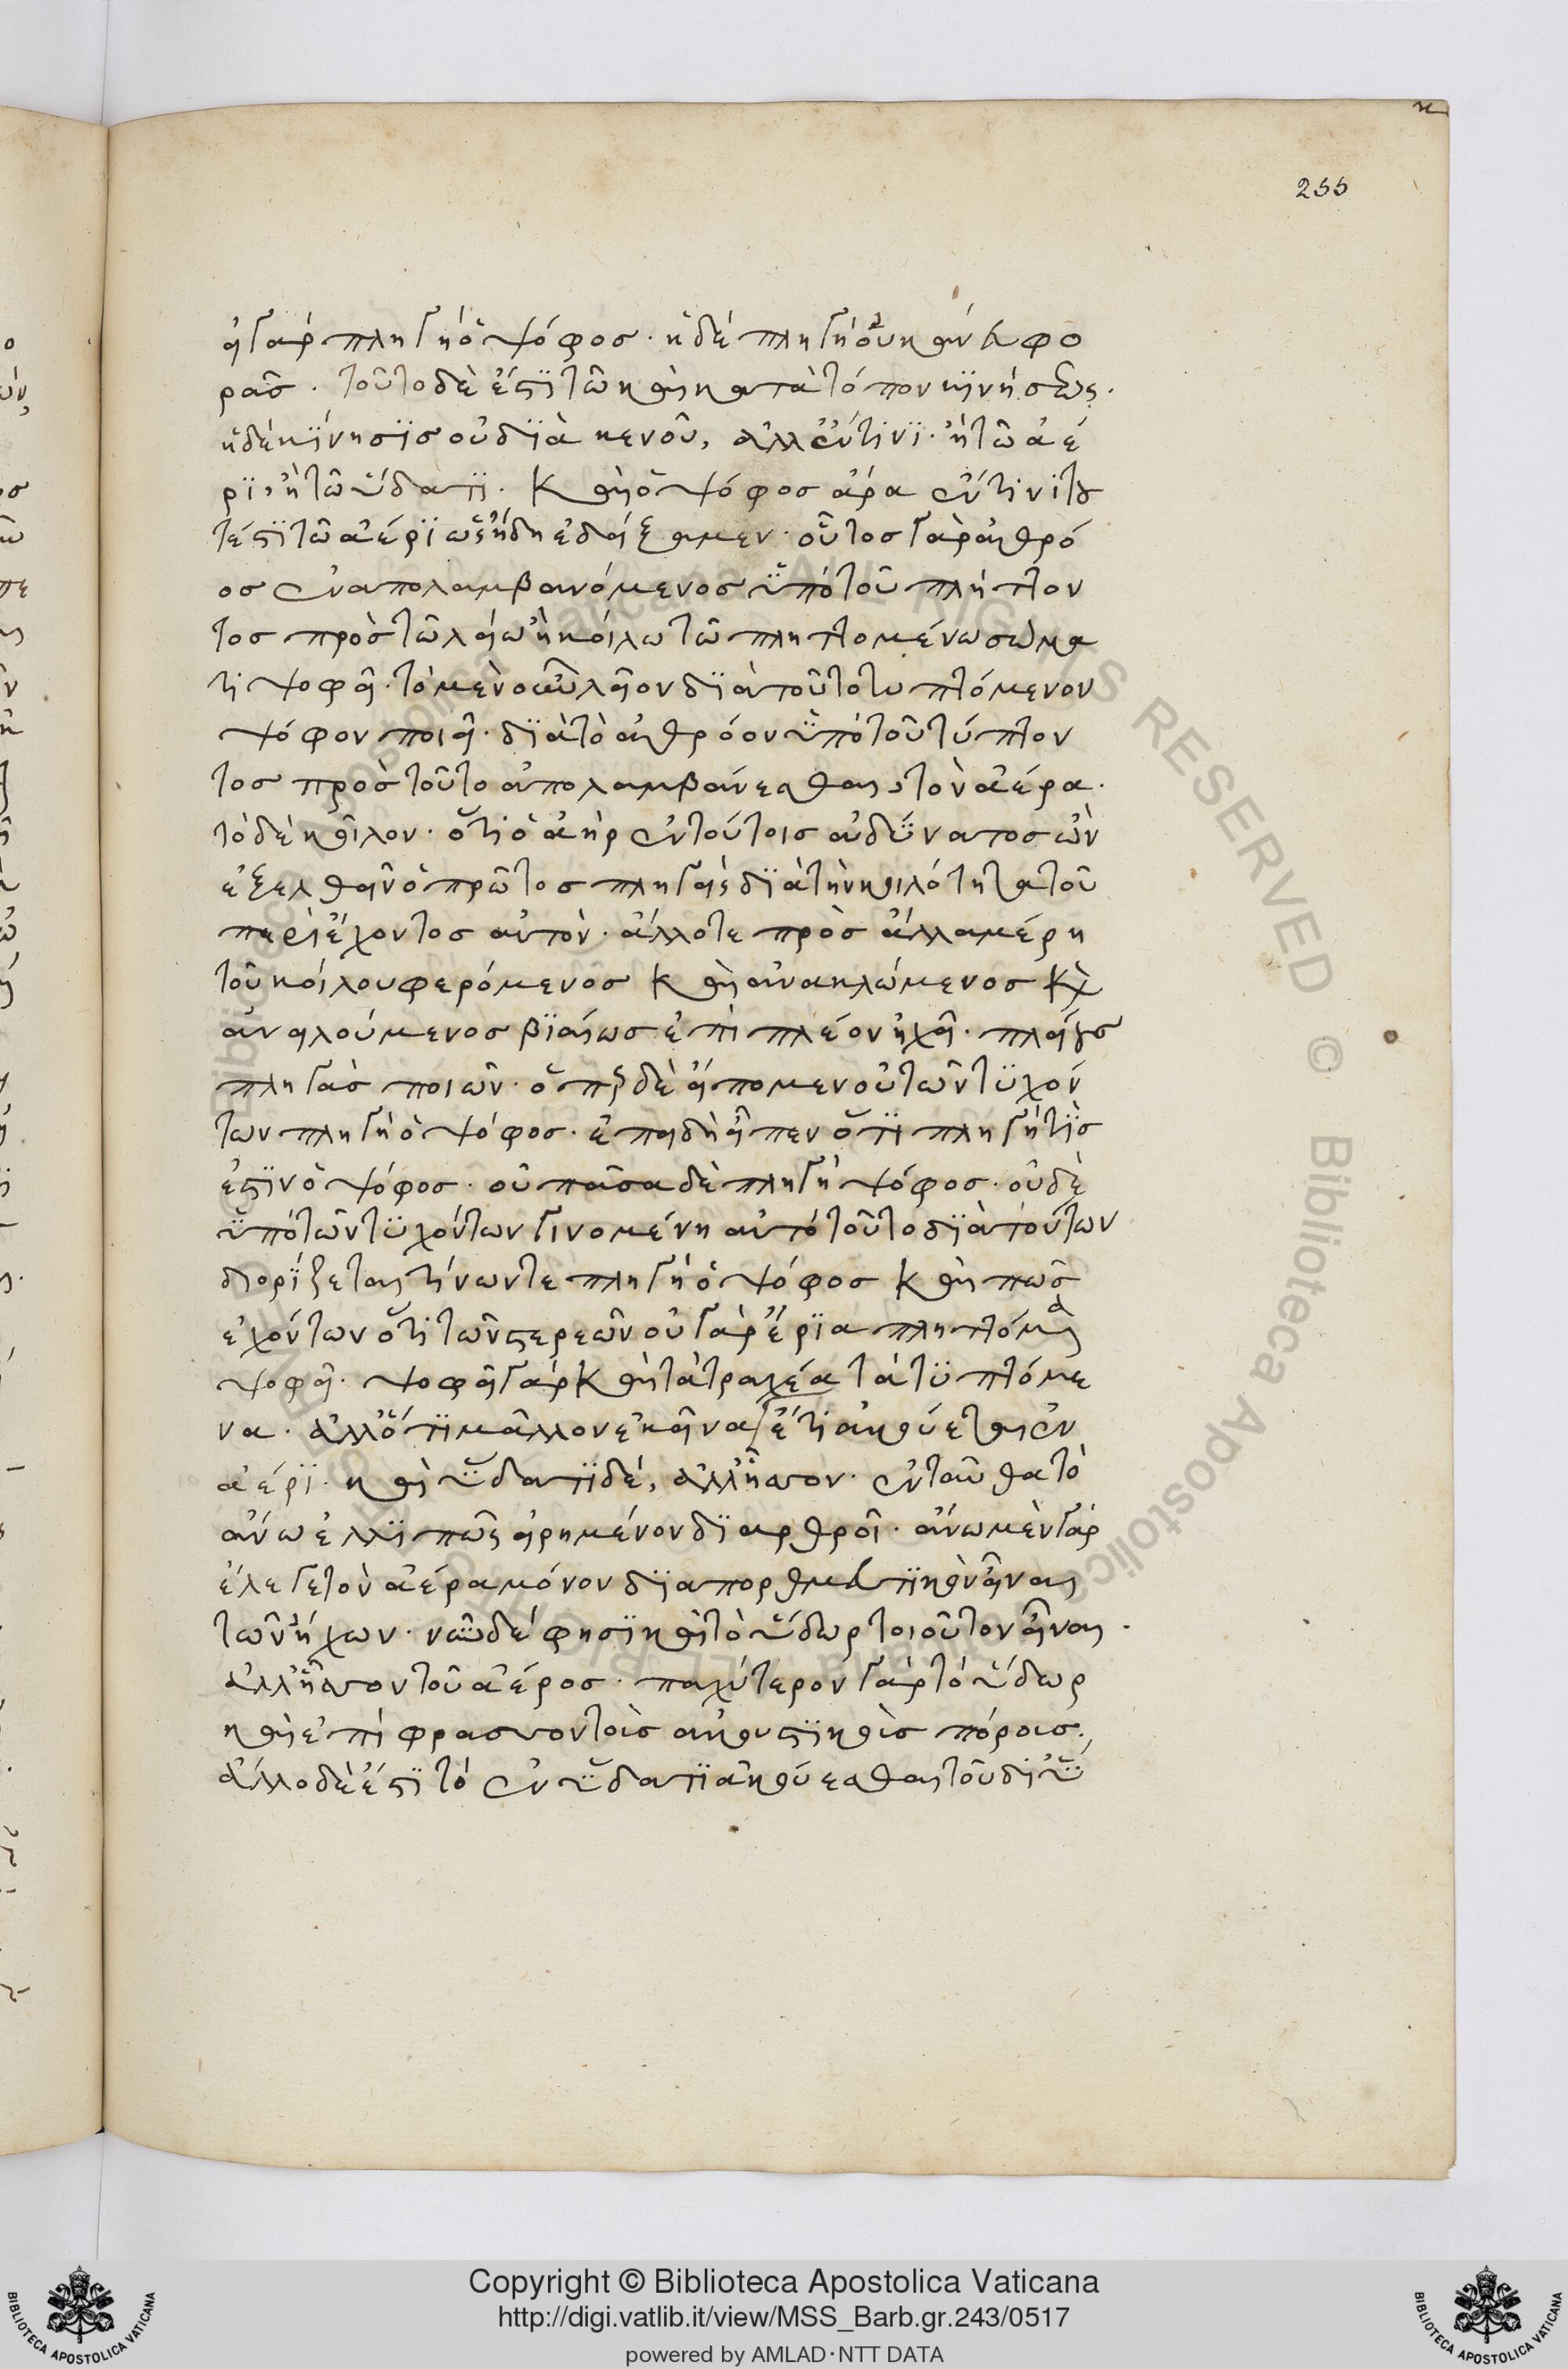 255
εἰ γὰρ πληγὴ ὁ ψόφος· ἡ δὲ πληγὴ οὐκ ἄνευ φο
ρᾶς· τοῦτο δὲ ἐστὶ τῶ καὶ κατὰ τόπον κινήσεως·
ἡ δὲ κίνησις οὐ διὰ κενοῦ, ἀλλ' ἔν τινι· ἢ τῶ ἀέ
ρι, ἢ τῶ ὕδατι· καὶ ὁ ψόφος ἄρα ἔν τινι του
τέστι τῶ ἀέρι ὡς ἤδη ἐδείξαμεν· οὗτος γὰρ ἀθρό
ος ἐναπολαμβανόμενος ὑπὸ τοῦ πλήττον
τος πρὸς τῶ λείω ἢ κοίλω τῶ πληττομένω σώμα
τι ψοφεῖ· τὸ μὲν οὖν λεῖον διὰ τοῦτο τυπτόμενον
ψόφον ποιεῖ· διὰ τὸ ἀθρόον ὑπὸ τοῦ τύπτον
τος πρὸς τοῦτο ἀπολαμβάνεσθαι, τὸν ἀέρα·
τὸ δὲ κοῖλον· ὅτι ὁ ἀὴρ ἐν τούτοις ἀδύνατος ὢν
ἐξελθεῖν ὁ πρῶτος πληγεὶς διὰ τὴν κοιλότητα τοῦ
περιέχοντος αὐτὸν· ἄλλοτε πρὸς ἄλλα μέρη
τοῦ κοίλου φερόμενος καὶ ἀνακλώμενος καὶ
ἀνειλούμενος βιαίως ἐπὶ πλέον ἠχεῖ· πλείους
πληγὰς ποιῶν· ὅπερ δὲ εἴπομεν οὐ τῶν τυχόν
των πληγὴ ὁ ψόφος· ἐπειδὴ εἶπεν ὅτι πληγή τις
ἐστὶν ὁ ψόφος· οὐ πᾶσα δὲ πληγὴ ψόφος· οὐδὲ
ὑπὸ τῶν τυχόντων γινομένη αὐτὸ τοῦτο διὰ τούτων
διορίζεται τίνων τε πληγὴ ὁ ψόφος καὶ πῶς
ἐχόντων ὅτι τῶν στερεῶν οὐ γὰρ ἔρια πληττόμενα
ψοφεῖ· ψοφεῖ γὰρ καὶ τὰ τραχέα τὰ τυπτόμε
να· ἀλλ' ὅτι μᾶλλον ἐκεῖνα ἔτι ἀκούεται ἐν
ἀέρι· καὶ ὕδατι δὲ, ἀλλ' ἧττον· ἐνταῦθα τὸ
ἄνω ἐλλιπῶς εἰρημένον διαρθροῖ· ἄνω μὲν γὰρ
ἔλεγε τὸν ἀέρα μόνον διαπορθμευτικὸν εἶναι
τῶν ἤχων· νῦν δὲ φησὶ καὶ τὸ ὕδωρ τοιοῦτον εἶναι·
ἀλλ' ἧττον τοῦ ἀέρος· παχύτερον γὰρ τὸ ὕδωρ
καὶ ἐπιφράσσον τοῖς ἀκουστικοῖς πόροις·
ἄλλο δὲ ἐστὶ τὸ ἐν ὕδατι ἀκούεσθαι τοῦ δι' ὕ
Copyright © Biblioteca Apostolica Vaticana
http://digi.vatlib.it/view/MSS_Barb.gr.243/0517
powered by AMLAD·NTT DATA